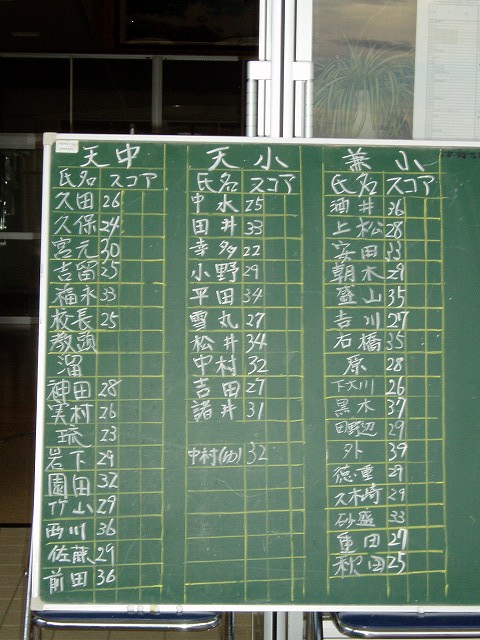 天中
氏名 スコア
久田 26
久保 24
宮元 30
吉留 35
福永 33
校長 25
教頭
溜
神田 28
実村 26
琉 23
岩下 29
園田 32
竹山 29
西川 36
佐藤 29
前田 36
天小
氏名 スコア
中水 25
田井 33
幸多 22
小野 29
平田 34
雪丸 27
松井 34
中村 32
吉田 27
諸井 31
中村(ゆ) 32
兼小
氏名 スコア
酒井 36
上松 28
安田 33
朝木 29
盛山 35
吉川 27
石橋 35
原 28
下大川 26
黒木 37
田野辺 29
外 39
徳重 29
久木崎 29
砂盛 33
重田 27
秋田 25